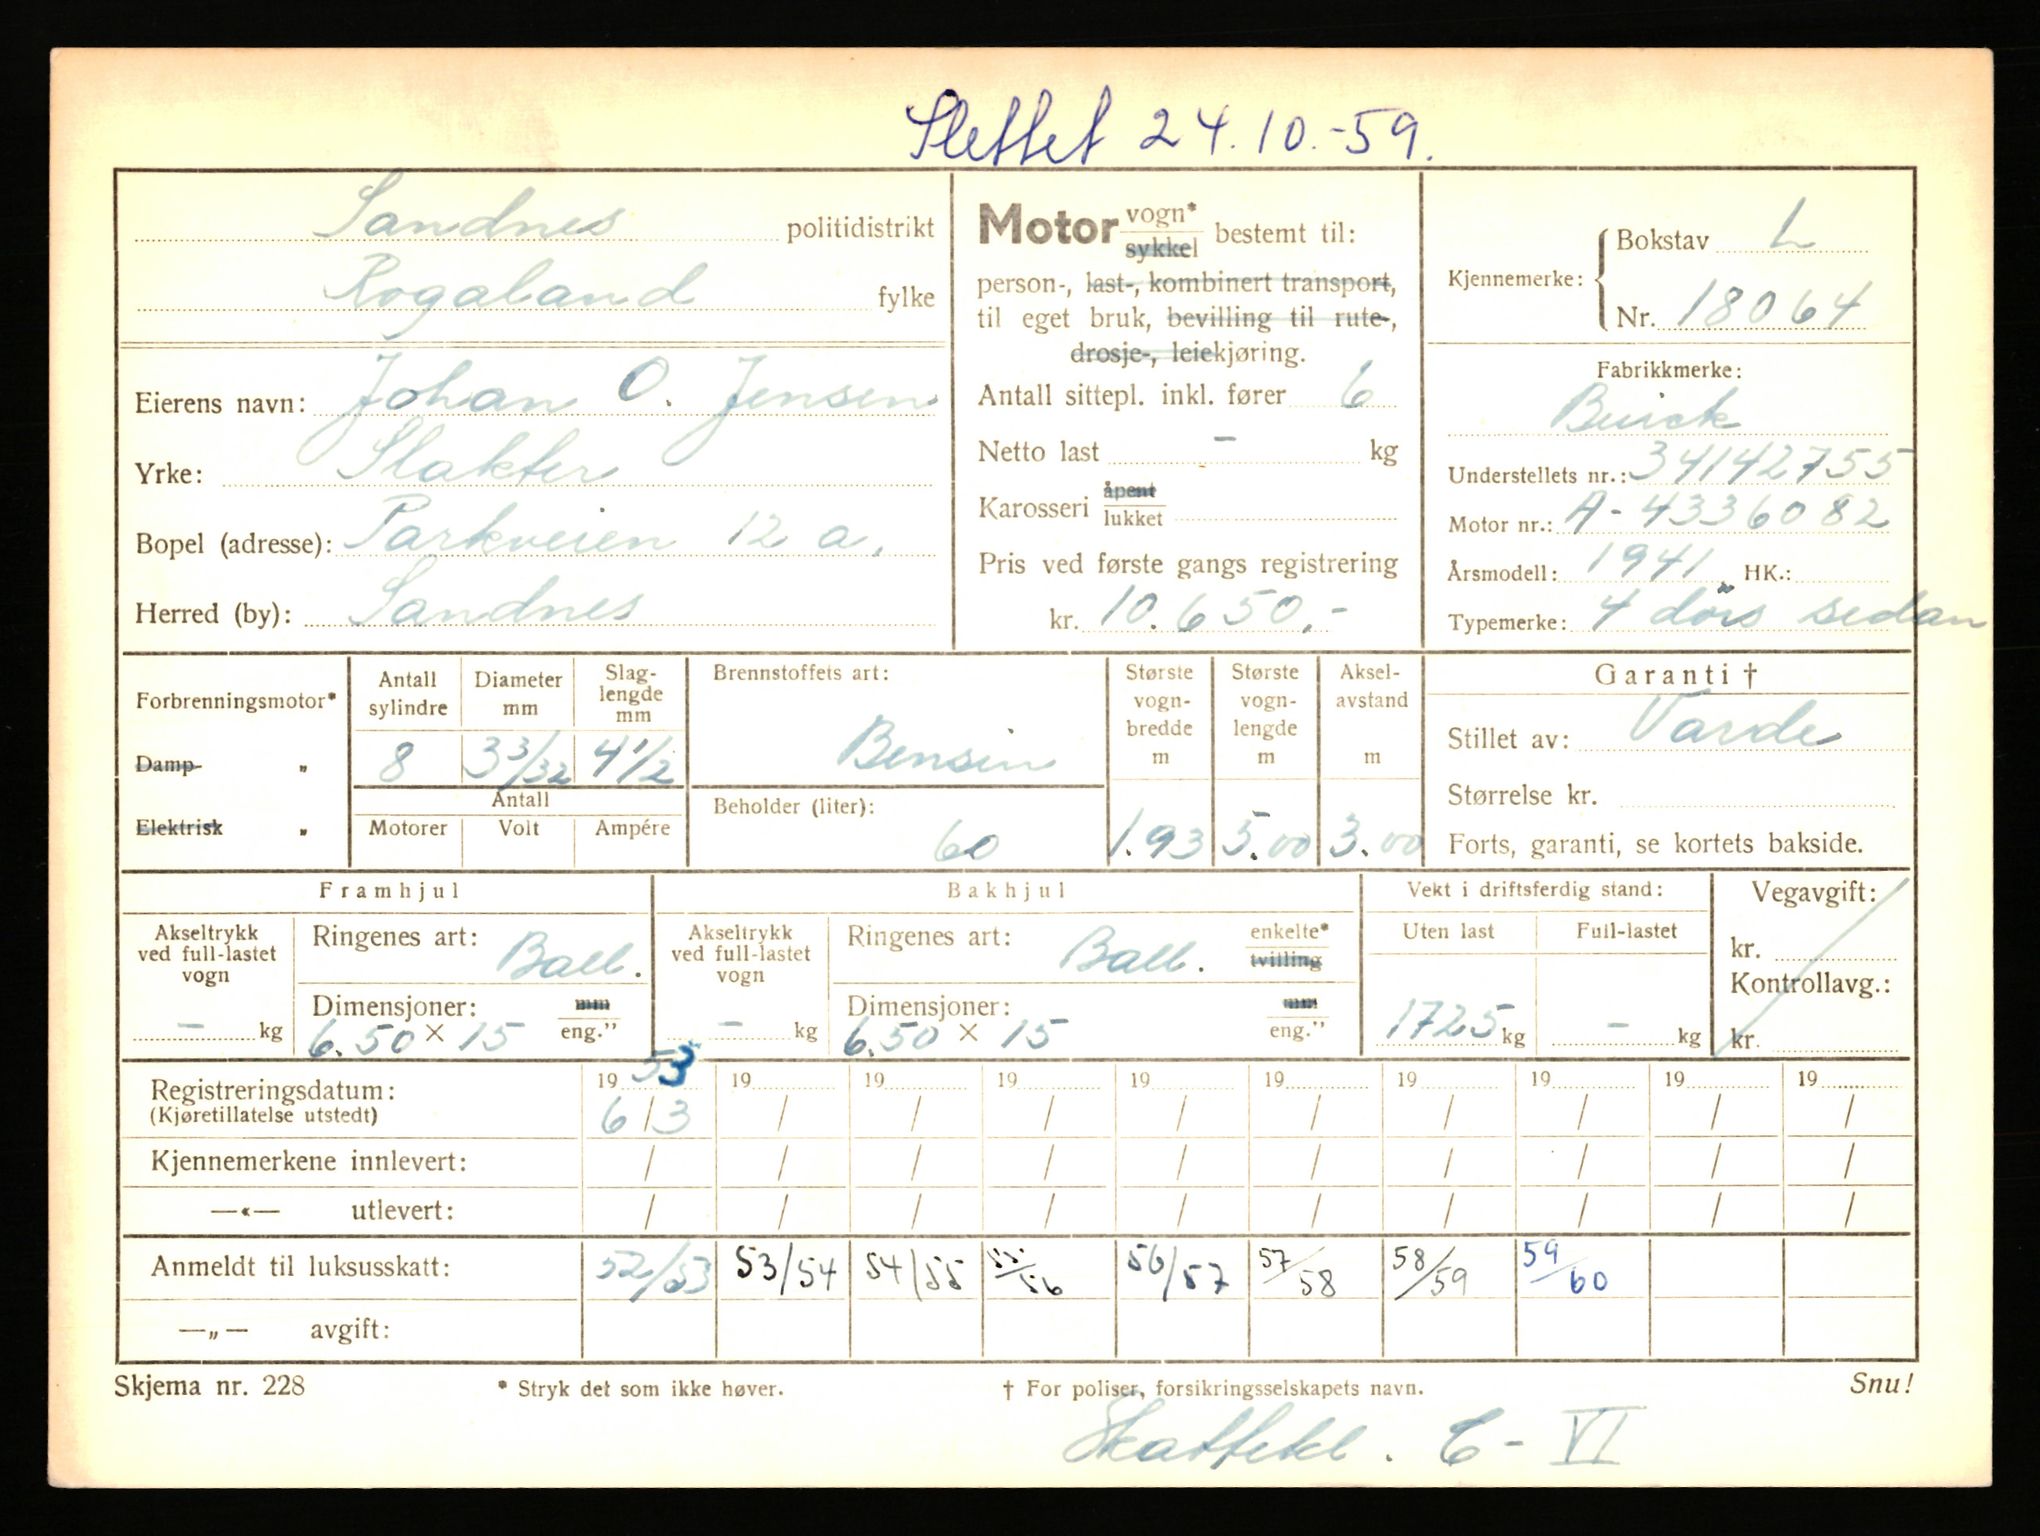 Slettet 24.10.-59.
Sandnes politidistrikt
Rogaland fylke
Eierens navn: Johan O. Jensen
Yrke: Slakter
Bopel (adresse): Parkveien 12 a.
Herred (by): Sandnes
Motor vogn* sykkel bestemt til:
person-, last-, kombinert transport,
til eget bruk, bevilling til rute-,
drosje-, leiekjøring.
Antall sittepl. inkl. fører 6
Netto last - kg
Karosseri åpent lukket
Pris ved første gangs registrering
kr. 10.650,-
Kjennemerke: Bokstav L
Nr. 18064
Fabrikkmerke:
Buick
Understellets nr.: 34142755
Motor nr.: A-4336082
Årsmodell: 1941 HK.:
Typemerke: 4 dørs sedan
Forbrenningsmotor*
Damp- "
Elektrisk "
Antall sylindre 8
Diameter mm 3 3/32
Slaglengde mm 4 1/2
Antall
Motorer Volt Ampére
Brennstoffets art:
Bensin
Beholder (liter):
60
Største vognbredde m 1.93
Største vognlengde m 5.00
Akselavstand m 3.00
Garanti †
Stillet av: Varde
Størrelse kr.
Forts, garanti, se kortets bakside.
Framhjul
Akseltrykk ved full-lastet vogn - kg
Ringenes art: Ball.
Dimensjoner: mm eng."
6.50 × 15
Bakhjul
Akseltrykk ved full-lastet vogn - kg
Ringenes art: Ball. enkelte* tvilling
Dimensjoner: mm eng."
6.50 × 15
Vekt i driftsferdig stand:
Uten last 1725 kg
Full-lastet - kg
Vegavgift:
kr.
Kontrollavg.:
kr.
Registreringsdatum: 19 53 19 19 19 19 19 19 19 19 19
(Kjøretillatelse utstedt) 6/3 / / / / / / / / /
Kjennemerkene innlevert: / / / / / / / / / /
—«— utlevert: / / / / / / / / / /
Anmeldt til luksusskatt: 52/53 53/54 54/55 55/56 56/57 57/58 58/59 59/60
—„— avgift:
Skjema nr. 228 * Stryk det som ikke høver. † For poliser, forsikringsselskapets navn. Snu!
Skattekl. C - VI